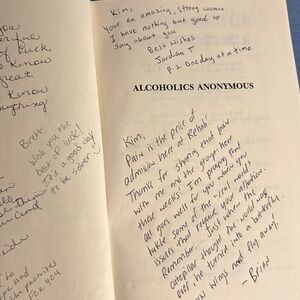 you
luck
know
great
I know
anything
Brett
Wish you the
best of luck!
It's a good day
to be sober
the promises
FOR YOU
Kim,
Your an amazing, strong woman
I have nothing but good to
say about you
Best wishes
Jordan T
P.S. One day at a time
ALCOHOLICS ANONYMOUS
Kim,
Pain is the price of
admission here at Rehab!
Thanks for sharing that pain
with me and the group here
these weeks! I'm praying that
all goes well for you when you
tackle some of the "real world"
issues that require your attention.
Remember: Just when the
caterpillar thought the world was
over she turned into a butterfly.
Now wing and fly away!
- Brian